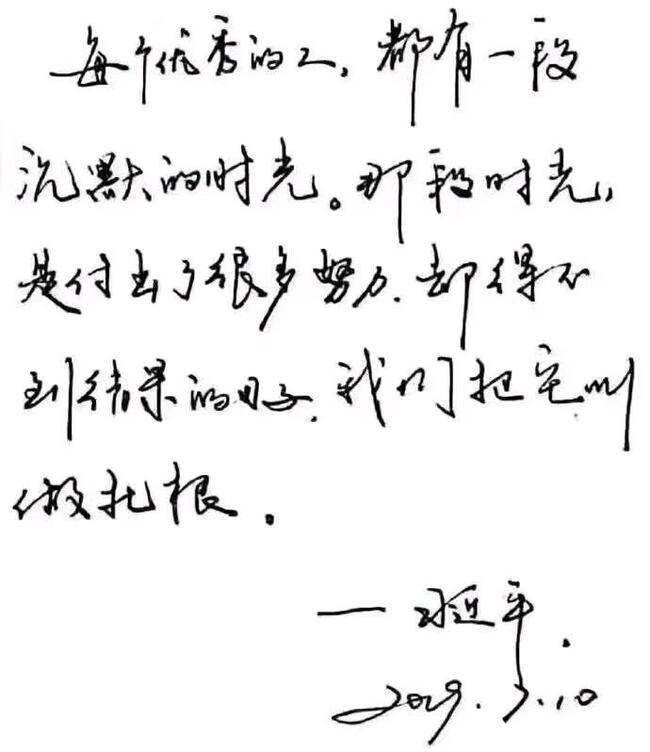 每个优秀的人,都有一段
沉默的时光。那段时光,
是付出了很多努力,却得不
到结果的日子,我们把它叫
做扎根。
——习近平.
2029.3.10